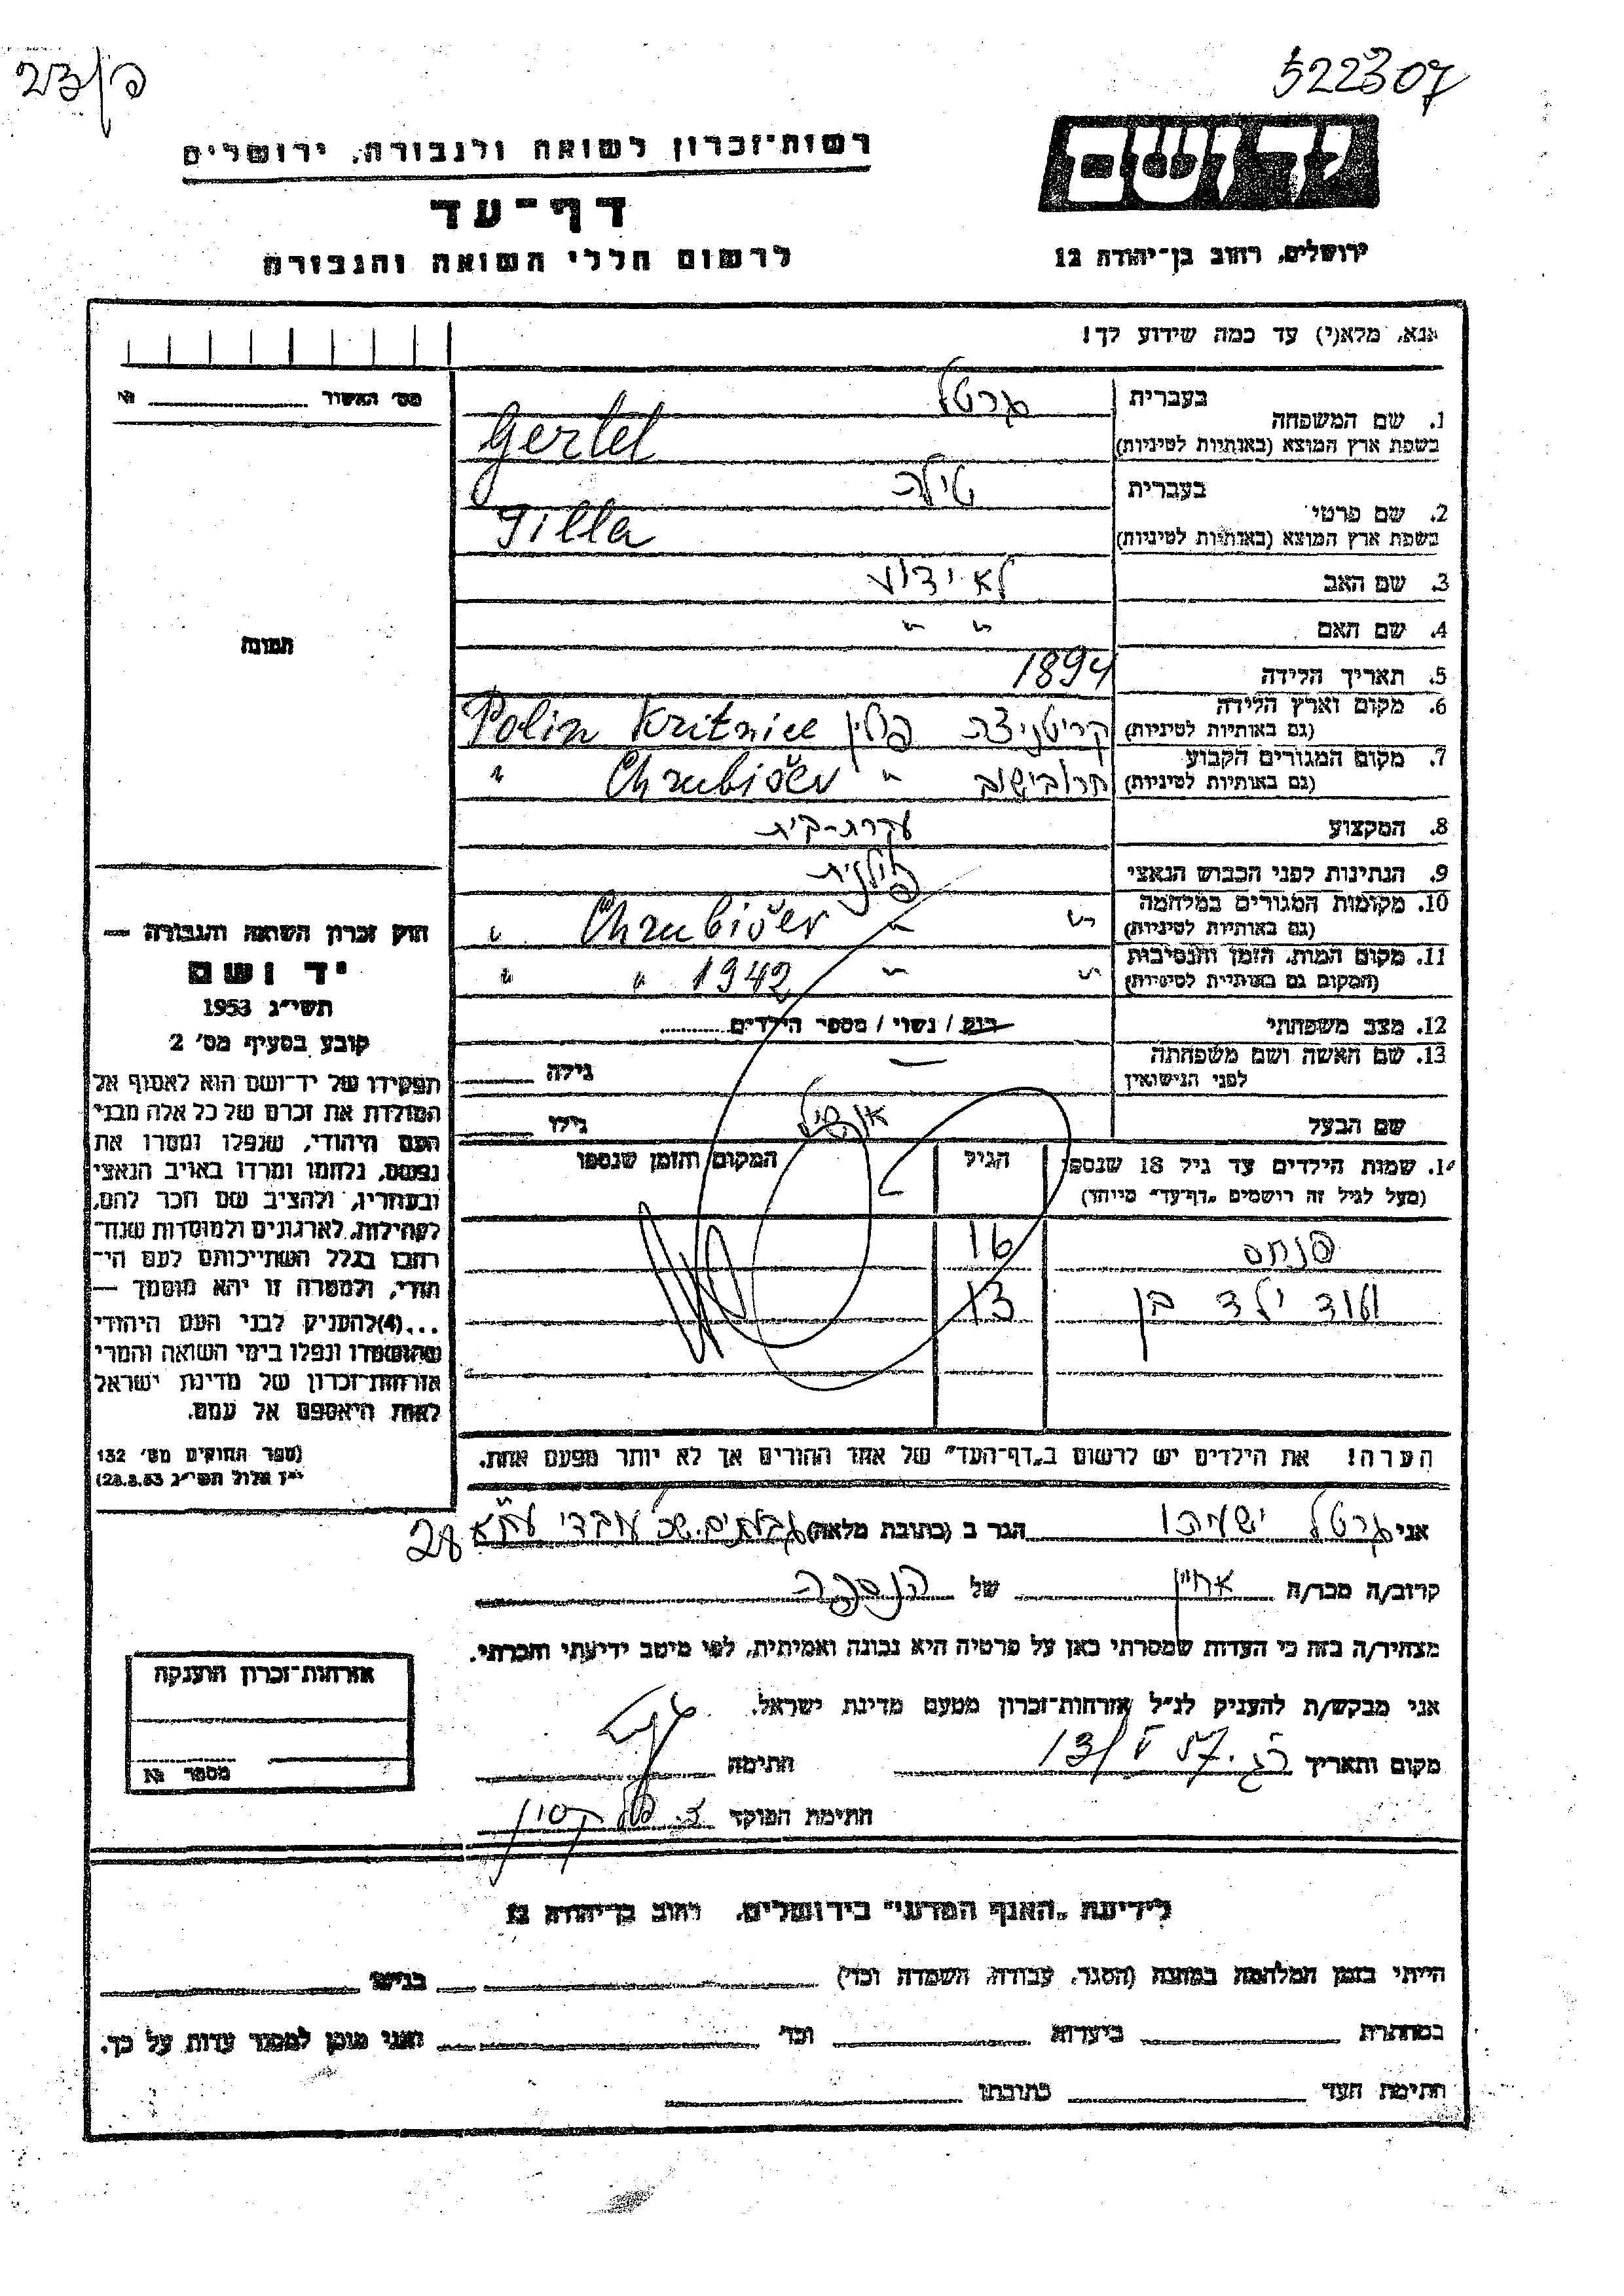 522307
רשות־זכרון לשואה ולגבורה, ירושלים
יד ושם
דף־עד
לרשום חללי השואה והגבורה
ירושלים, רחוב בן־יהודה 12
אנא, מלא(י) עד כמה שידוע לך!
מס׳ האשור №
בעברית גרטל
1. שם המשפחה
בשפת ארץ המוצא (באותיות לטיניות) Gertel
בעברית טילה
2. שם פרטי
בשפת ארץ המוצא (באותיות לטיניות) Tilla
3. שם האב לא ידוע
4. שם האם " "
תמונה
5. תאריך הלידה 1894
6. מקום וארץ הלידה
(גם באותיות לטיניות) קריטניצה פולין Kritnice Polin
7. מקום המגורים הקבוע
(גם באותיות לטיניות) חרובישוב " Chrubišev "
8. המקצוע עקרת-בית
9. הנתינות לפני הכבוש הנאצי פולנית
10. מקומות המגורים במלחמה
(גם באותיות לטיניות) " " Chrubišev "
11. מקום המות, הזמן והנסיבות
(המקום גם באותיות לטיניות) " " 1942 " "
12. מצב משפחתי רוק / נשוי / מספר הילדים
13. שם האשה ושם משפחתה
לפני הנישואין — גילה
שם הבעל גילו
14. שמות הילדים עד גיל 18 שנספו הגיל המקום והזמן שנספו
(מעל לגיל זה רושמים „דף־עד" מיוחד)
פנחס 16
ועוד ילד בן 13
הערה! את הילדים יש לרשום ב„דף־העד" של אחד ההורים אך לא יותר מפעם אחת.
חוק זכרון השואה והגבורה —
יד ושם
תשי״ג 1953
קובע בסעיף מס׳ 2
תפקידו של יד־ושם הוא לאסוף אל
המולדת את זכרם של כל אלה מבני
העם היהודי, שנפלו ומסרו את
נפשם, נלחמו ומרדו באויב הנאצי
ובעוזריו, ולהציב שם וזכר להם,
לקהילות, לארגונים ולמוסדות שנח־
רבו בגלל השתייכותם לעם הי־
הודי, ולמטרה זו יהא מוסמך —
...(4) להעניק לבני העם היהודי
שהושמדו ונפלו בימי השואה והמרי
אזרחות־זכרון של מדינת ישראל
לאות היאספם אל עמם.
(ספר החוקים מס׳ 132
י״ז אלול תשי״ג 28.8.53)
אני גרטל ישעיהו הגר ב (כתובת מלאה) גבעתיים שכ עובדי 28
קרוב/ה מכר/ה אחיין של הנספה
מצהיר/ה בזה כי העדות שמסרתי כאן על פרטיה היא נכונה ואמיתית, לפי מיטב ידיעתי והכרתי.
אני מבקש/ת להעניק לנ״ל אזרחות־זכרון מטעם מדינת ישראל.
מקום ותאריך 13/V 57 חתימה
חתימת הפוקד
אזרחות־זכרון הוענקה
מספר №
לידיעת „האגף המדעי" בירושלים, רחוב בן־יהודה 12
הייתי בזמן המלחמה במחנה (הסגר, עבודה, השמדה וכד׳) בגיטו
במחתרת ביערות וכד׳ ואני מוכן למסור עדות על כך.
חתימת העד כתובתו